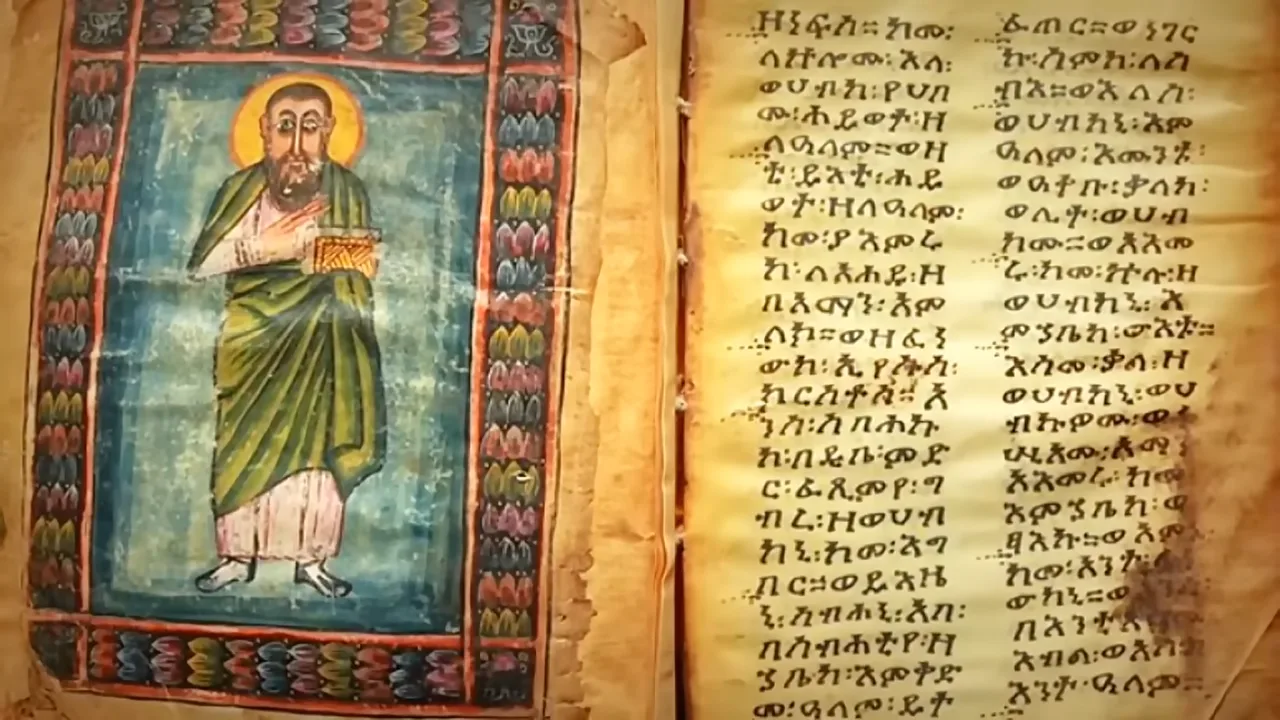 ዘነፍስ። ከመ፡
ለኵሎሙ፡ እለ፡
ወሀብከ፡ የሀበ
ሙ፡ ሕይወተ፡ ዘ
ለዓለም። ወዛ
ቲ፡ ይእቲ፡ ሕይ
ወት፡ ዘለዓለም፡
ከመ፡ ያእምሩ
ከ፡ ለአሕዱ፡ ዘ
በአማን፡ አም
ላክ። ወዘፈነ
ውከ፡ ኢየሱስ፡
ክርስቶስ። አ
ንሰ፡ ሰባሕኩ
ከ፡ በዲበ፡ ምድ
ር፡ ፈጺምየ፡ ግ
ብረ፡ ዘወሀብ
ከኒ፡ ከመ፡ እግ
በር። ወይእዜ
ኒ፡ ሰብሐኒ፡ አባ፡
በስብሐቲየ፡ ዘ
ኀቤከ፡ እምቅድ
መ፡ ዓለም፡ ይት
ፈጠር። ወነገር
ኩ፡ ስመከ፡ ለሰ
ብእ። ወእለሰ፡
ወሀብከኒ፡ እም
ዓለም፡ እሙንቱ፡
ወዓቀቡ፡ ቃለከ፡
ወሊተ፡ ወሀብ
ከሙ። ወአእመ
ሩ፡ ከመ፡ ኵሉ፡ ዘ
ወሀብከኒ፡ እ
ምኀቤከ፡ ውእቱ።
እስመ፡ ቃለ፡ ዘ
ወሀብከኒ፡ ወሀ
ብኩዎሙ፡
አማን
አእመሩ፡ ከመ
እምኀቤከ፡ ወ
ፃእኩ። ወአም
ከመ፡ አንተ፡
ውከኒ።
እብል፡
እንተ ዓለም።